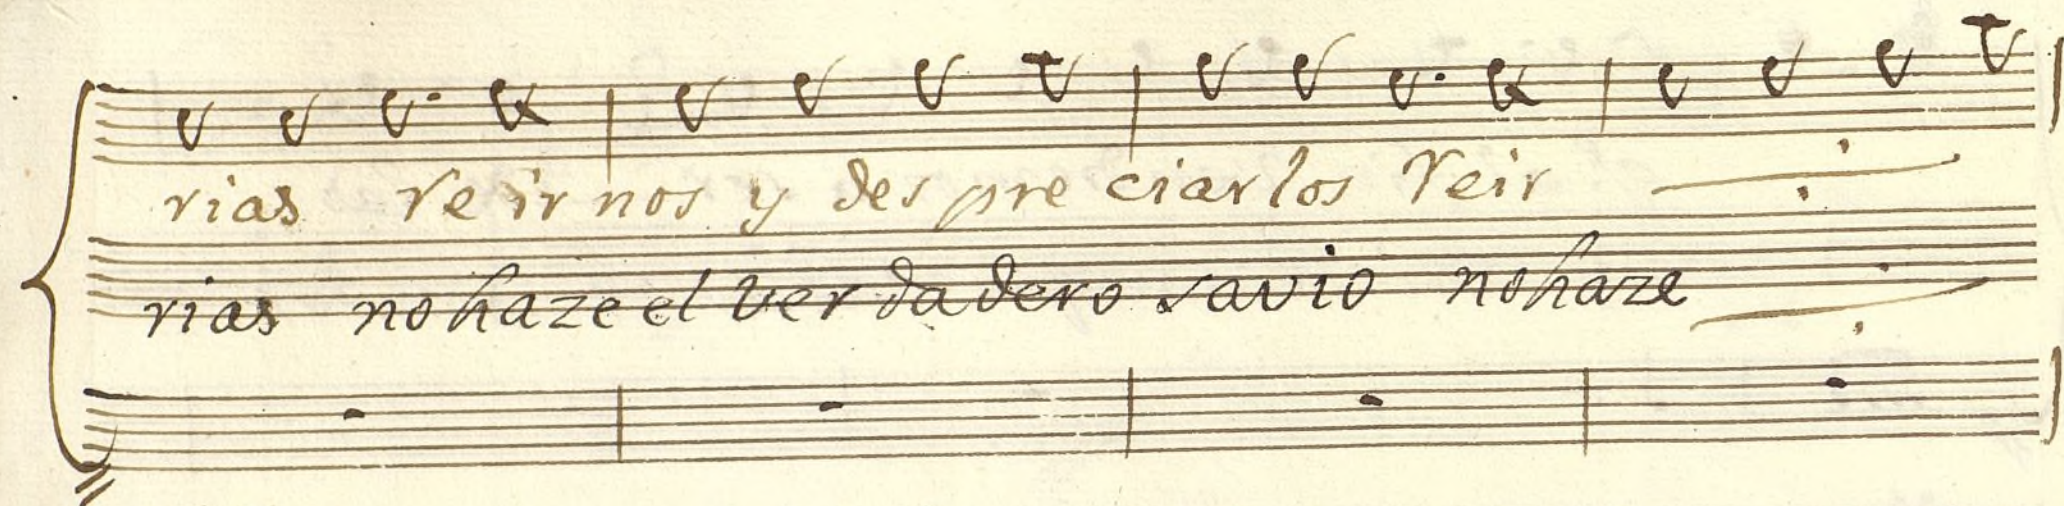 rias reir nos y des pre ciar los reir
rias no haze el verdadero savio no haze